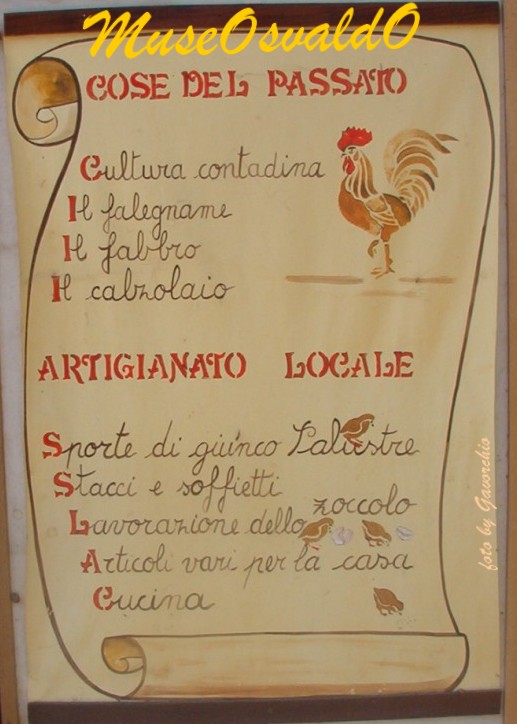 MuseOsvaldO
COSE DEL PASSATO
Cultura contadina
Il falegname
Il fabbro
Il calzolaio
ARTIGIANATO LOCALE
Sporte di giunco Palustre
Stacci e soffietti
Lavorazione dello zoccolo
Articoli vari per la casa
Cucina
foto by Gavorchio